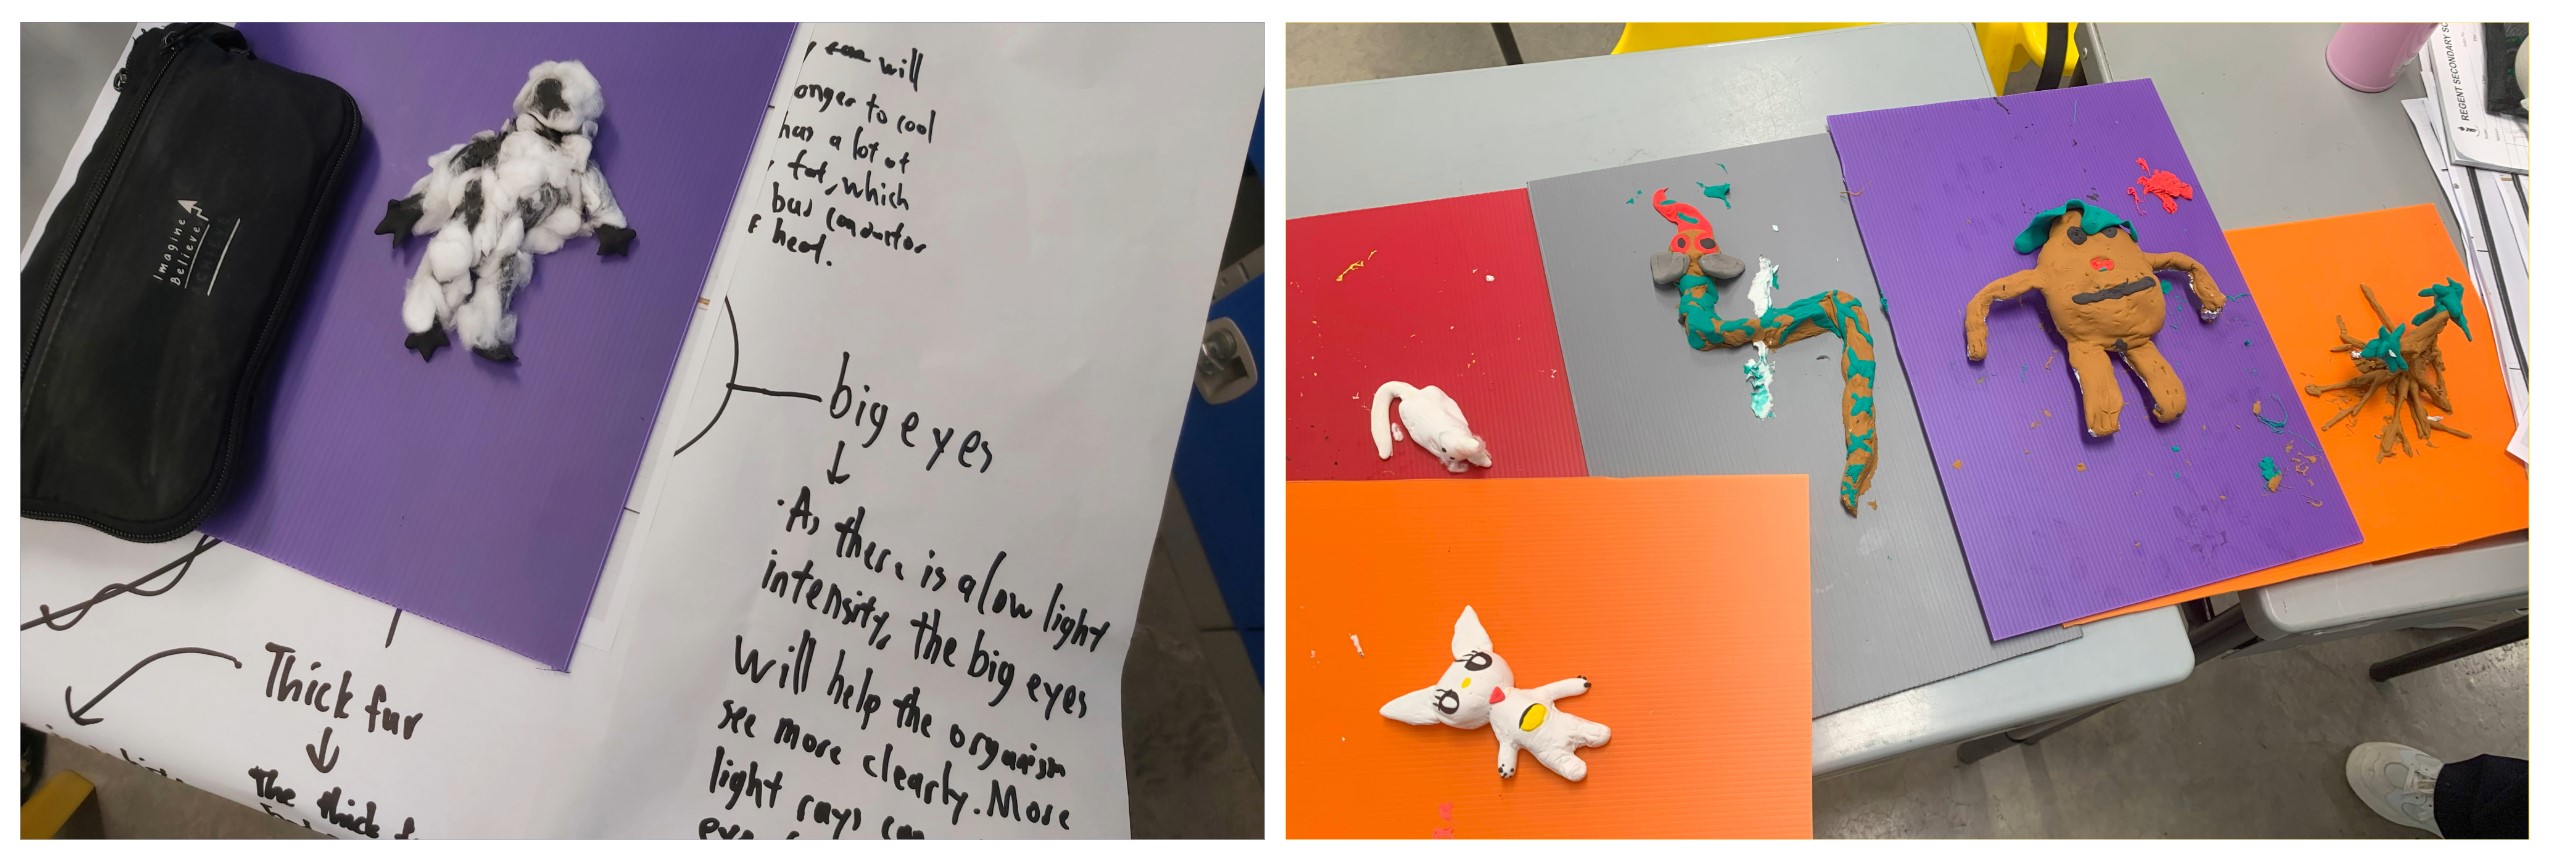 Imagine
Believe
ACHIEVE
will
onger to cool
has a lot of
fat, which
bad conductor
F heat.
big eyes
· As there is a low light
intensity, the big eyes
will help the organism
see more clearly. More
light rays can
Thick fur
The thick f
REGENT SECONDARY SC